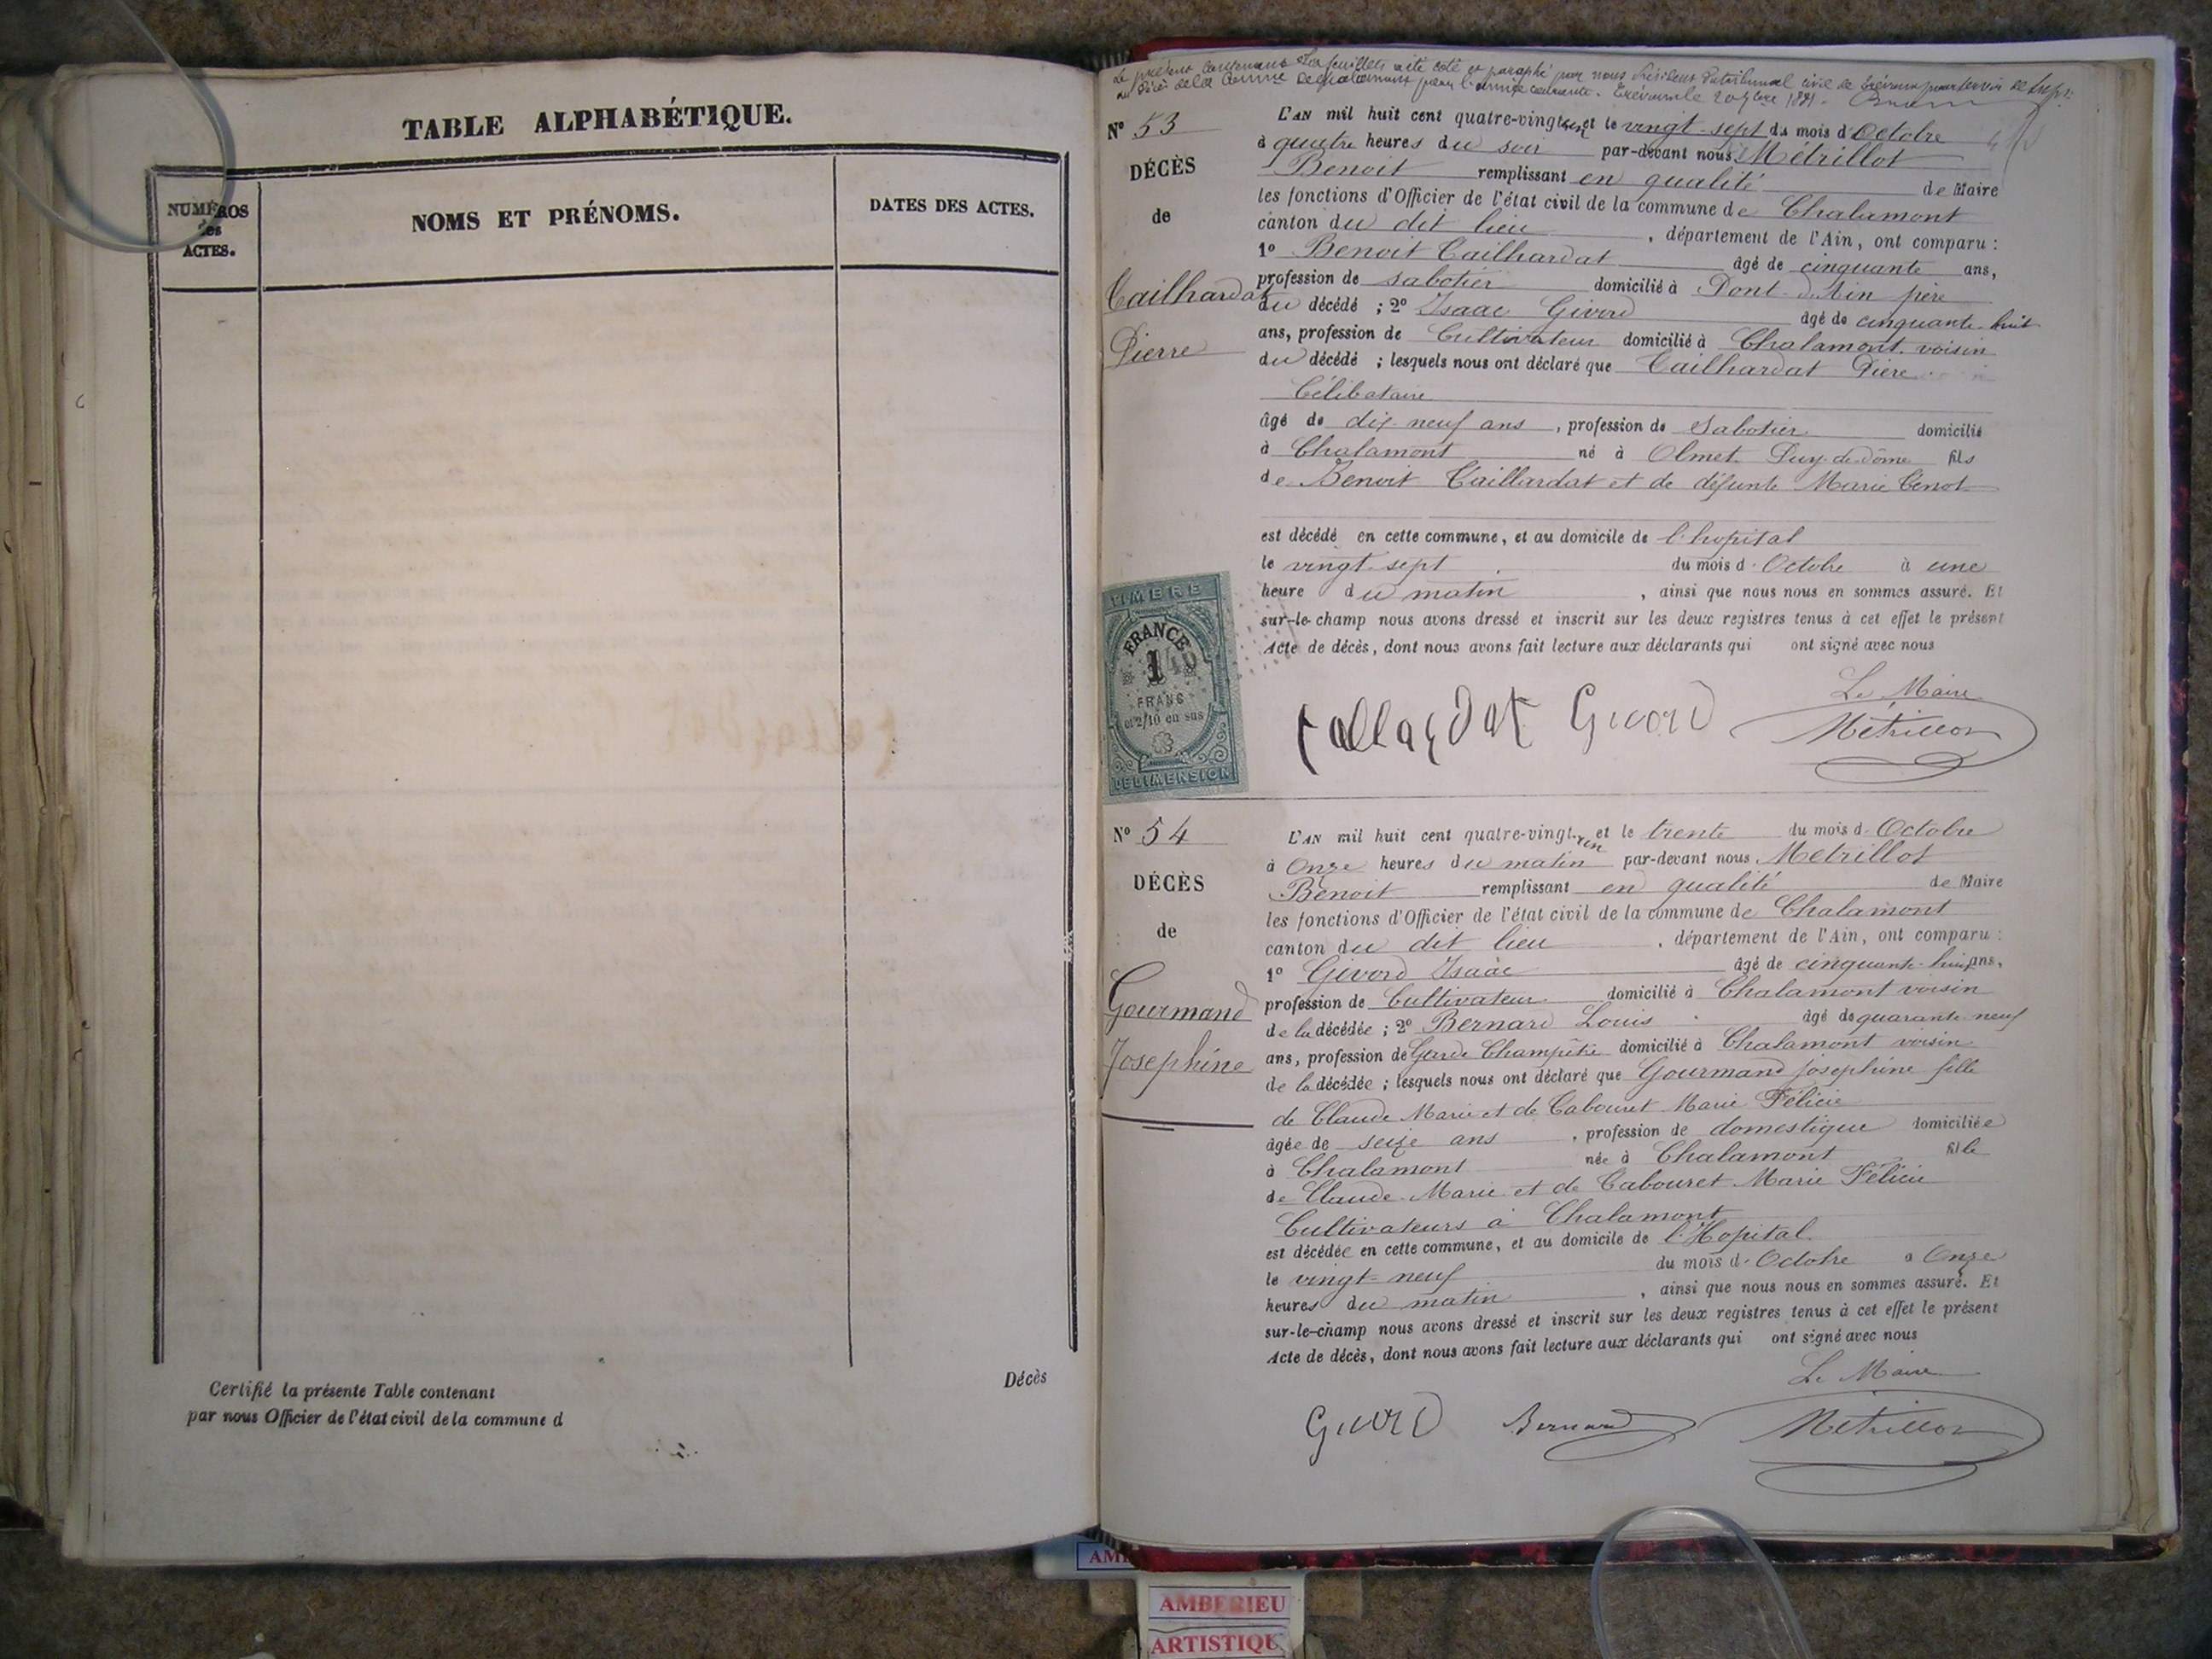 TABLE ALPHABÉTIQUE.
NUMÉROS
des
ACTES.
NOMS ET PRÉNOMS.
DATES DES ACTES.
Certifié la présente Table contenant
par nous Officier de l'état civil de la commune d
Décès
Le présent contenant feuillets a été coté et paraphé par nous Président du tribunal civil de Trévoux pour servir de
au décès de la Commune de Chalamont pour l'année courante. Trévoux le 1881.
N° 53
DÉCÈS
de
Tailhardat
Pierre
L'AN mil huit cent quatre-vingt-un et le vingt-sept du mois d'Octobre
à quatre heures du soir par-devant nous Métrillot
Benoit remplissant en qualité de Maire
les fonctions d'Officier de l'état civil de la commune de Chalamont
canton du dit lieu, département de l'Ain, ont comparu :
1° Benoit Tailhardat âgé de cinquante ans,
profession de sabotier domicilié à Pont-d'Ain père
du décédé ; 2° Isaac Givord âgé de cinquante-huit
ans, profession de Cultivateur domicilié à Chalamont voisin
du décédé ; lesquels nous ont déclaré que Tailhardat Piere
Célibataire
âgé de dix-neuf ans, profession de Sabotier domicilié
à Chalamont né à Olmet Puy-de-Dôme fils
de Benoit Taillardat et de défunte Marie
est décédé en cette commune, et au domicile de l'hopital
le vingt-sept du mois d'Octobre à une
heure du matin, ainsi que nous nous en sommes assuré. Et
sur-le-champ nous avons dressé et inscrit sur les deux registres tenus à cet effet le présent
Acte de décès, dont nous avons fait lecture aux déclarants qui ont signé avec nous
Le Maire
tallardat Givord Métrillot
TIMBRE
FRANCE
1
FRANC
et 2/10 en sus
DE DIMENSION
N° 54
DÉCÈS
de
Gourmand
Josephine
L'AN mil huit cent quatre-vingt-un et le trente du mois d'Octobre
à Onze heures du matin par-devant nous Métrillot
Benoit remplissant en qualité de Maire
les fonctions d'Officier de l'état civil de la commune de Chalamont
canton du dit lieu, département de l'Ain, ont comparu :
1° Givord Isaac âgé de cinquante-huit ans,
profession de Cultivateur domicilié à Chalamont voisin
de la décédée ; 2° Bernard Louis âgé de quarante-neuf
ans, profession de Garde Champêtre domicilié à Chalamont voisin
de la décédée ; lesquels nous ont déclaré que Gourmand Josephine fille
de Claude Marie et de Cabouret Marie Félicie
âgée de seize ans, profession de domestique domiciliée
à Chalamont née à Chalamont fille
de Claude-Marie et de Cabouret Marie Félicie
Cultivateurs à Chalamont
est décédée en cette commune, et au domicile de l'Hopital
le vingt-neuf du mois d'Octobre à Onze
heures du matin, ainsi que nous nous en sommes assuré. Et
sur-le-champ nous avons dressé et inscrit sur les deux registres tenus à cet effet le présent
Acte de décès, dont nous avons fait lecture aux déclarants qui ont signé avec nous
Le Maire
Givord Bernard Métrillot
AMBERIEU
ARTISTIQU